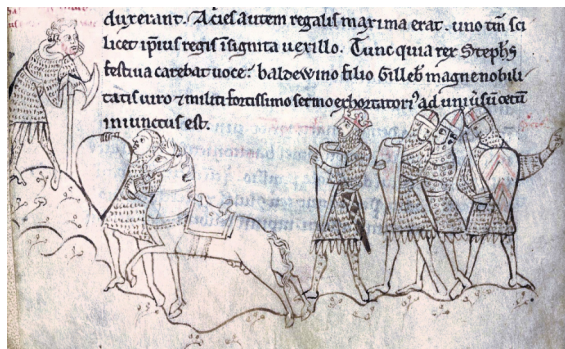 duxerant. Acies autem regalis maxima erat. uno tm̄ sci
licet ip̄ius regis īsignita uexillo. Tunc quia rex Stephs
festiua carebat uoce: baldewino filio Gilleb̄ magne nobili
tatis uiro ⁊ militi fortissimo sermo exhortatoriꝰ ad uniūsū cetū
iniunctus est.